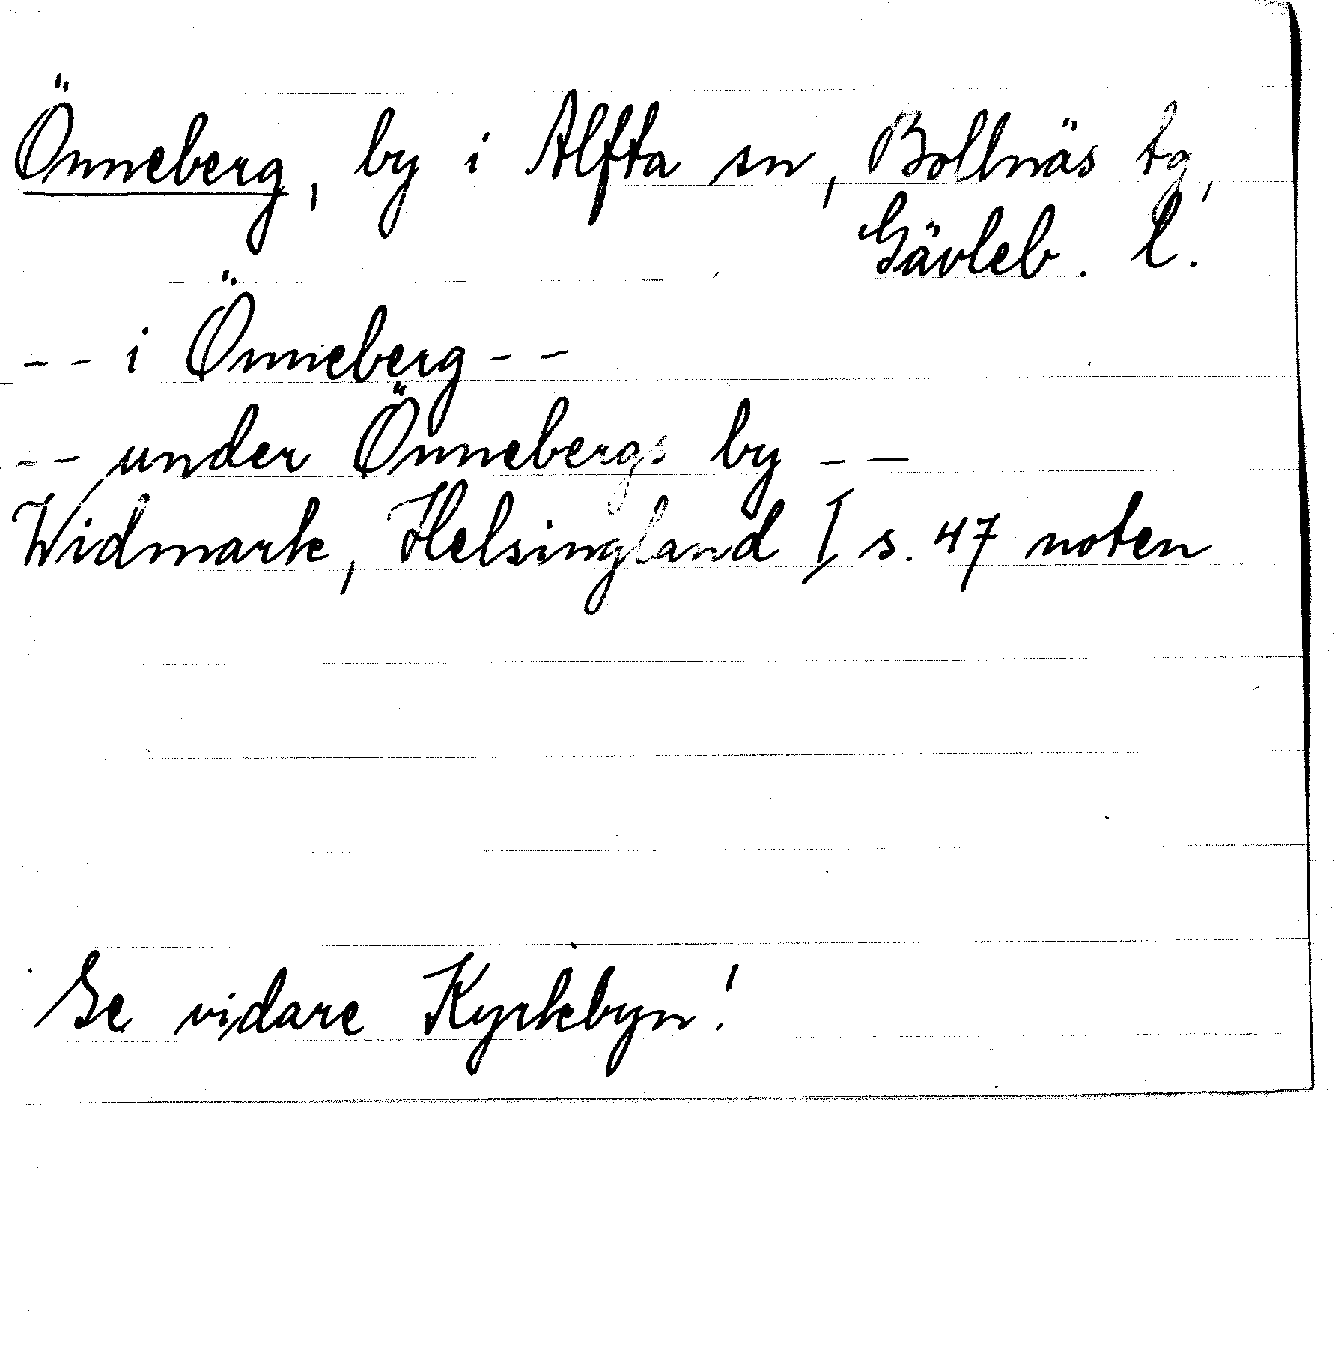 Önneberg, by i Alfta sn, Bollnäs tg,
Gävleb. l.
-- i Önneberg --
-- under Önnebergs by --
Widmark, Helsingland I s. 47 noten
Se vidare Kyrkbyn!